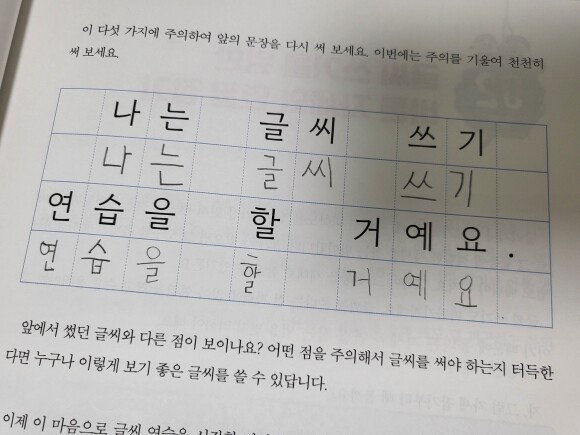 이 다섯 가지에 주의하여 앞의 문장을 다시 써 보세요. 이번에는 주의를 기울여 천천히
써 보세요.
나는 글씨 쓰기
나는 글씨 쓰기
연습을 할 거예요.
연습을 할 거예요.
앞에서 썼던 글씨와 다른 점이 보이나요? 어떤 점을 주의해서 글씨를 써야 하는지 터득한
다면 누구나 이렇게 보기 좋은 글씨를 쓸 수 있답니다.
이제 이 마음으로 글씨 연습을